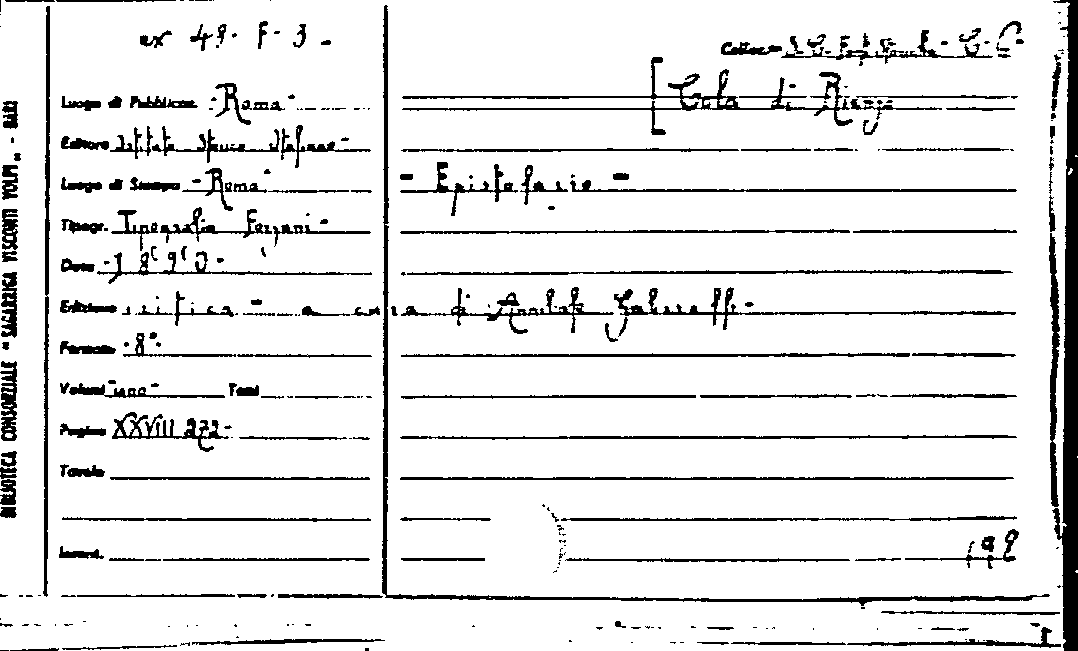 ex 49. F. 3.
Colloc.
[Cola di Rienzo
Luogo di Pubblicaz. - Roma -
Editore Istituto Storico Italiano -
Luogo di Stampa - Roma -
- Epistolario -
Tipogr. Tipografia Forzani -
Data - 1890 -
Edizione critica - a cura di Annibale Gabrielli -
Formato - 8° -
Volumi - uno - Tomi
Pagine XXVIII 272 -
Tavole
Invent.
BIBLIOTECA CONSORZIALE "SAGARRIGA VISCONTI VOLPI" - BARI